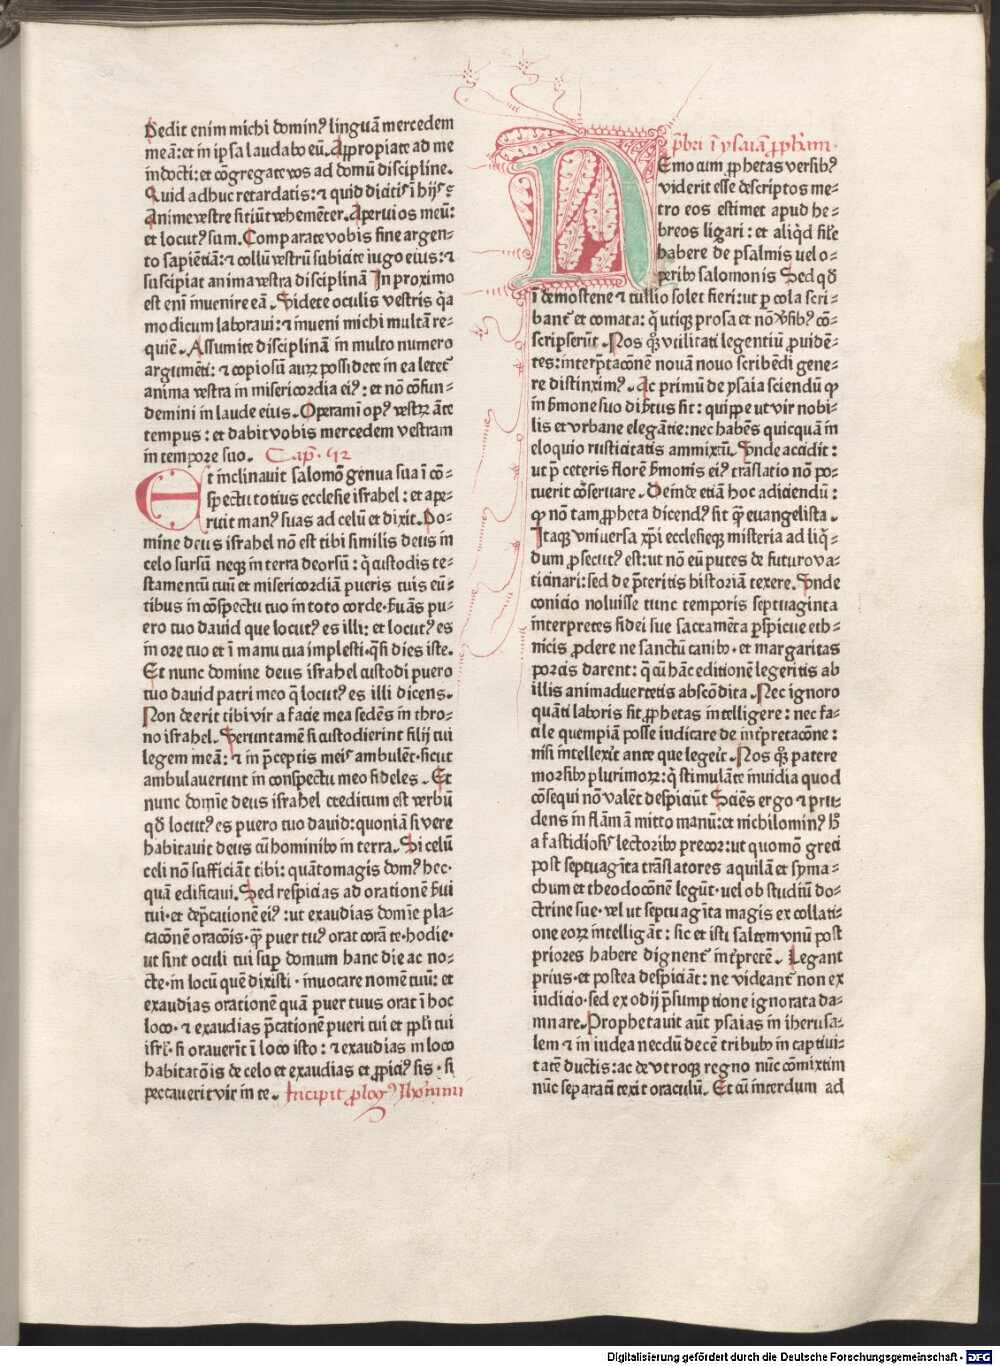 Dedit enim michi domin⁹ linguā mercedem
meā: et in ipsa laudabo eū. Appropiate ad me
indocti: et cōgregate vos ad domū discipline.
Quid adhuc retardatis: ⁊ quid dicitis ī hijs:
Anime vestre sitiūt vehemēter. Aperui os meū:
et locut⁹ sum. Comparate vobis sine argen-
to sapiētiā: ⁊ collū vestrū subicite iugo eius: ⁊
suscipiat anima vestra disciplinā In proximo
est enī inuenire eā. Videte oculis vestris q̄a
modicum laboraui: ⁊ inueni michi multā re-
quiē. Assumite disciplinā in multo numero
argumēti: ⁊ copiosū auꝝ possidete in ea letet̄
anima vestra in misericordia ei⁹: et nō cōfun-
demini in laude eius. Operamī op⁹ vestꝝ āte
tempus: et dabit vobis mercedem vestram
in tempore suo. Cap. 52
Et inclinauit salomō genua sua ī cō-
spectu totius ecclesie israhel: et ape-
ruit man⁹ suas ad celū et dixit. Do-
mine deus israhel nō est tibi similis deus in
celo sursū neqꝫ in terra deorsū: q̄ custodis te-
stamentū tuū et misericordiā pueris tuis eū-
tibus in cōspectu tuo in toto corde. ẜuās pu-
ero tuo dauid que locut⁹ es illi: et locut⁹ es
in ore tuo et ī manu tua implesti. q̄si dies iste.
Et nunc domine deus israhel custodi puero
tuo dauid patri meo q̄ locut⁹ es illi dicens.
Non deerit tibi vir a facie mea sedēs in thro-
no israhel. Veruntamē si custodierint filij tui
legem meā: ⁊ in p̄ceptis meis ambulēt. sicut
ambulauerunt in conspectu meo fideles. Et
nunc domīe deus israhel creditum est verbū
qđ locut⁹ es puero tuo dauid: quoniā si vere
habitauit deus cū hominibꝰ in terra. Si celū
celi nō sufficiāt tibi: quāto magis dom⁹ hec.
quā edificaui. Sed respicias ad orationē ẜui
tui. et dep̄cationē ei⁹: ut exaudias domīe pla-
tacōnē oracōis. q̄ꝫ puer tu⁹ orat corā te. hodie.
ut sint oculi tui suꝑ domum hanc die ac no-
cte. in locū quē dixisti. inuocare nomē tuū: et
exaudias orationē quā puer tuus orat ī hoc
loco. ⁊ exaudias p̄cationē pueri tui et ppl̄i tui
isrl̄. si orauerīt ī loco isto: ⁊ exaudias in loco
habitatōis de celo et exaudias et ꝓpici⁹ sis. si
peccauerit vir in te. Incipit ꝓlog⁹ Jheronimi
p̄bri ī ysaiā ꝓphetam.
Nemo cum ꝓphetas versibꝰ
viderit esse descriptos me-
tro eos estimet apud he-
breos ligari: et aliq̄d sil̄e
habere de psalmis uel o-
peribꝰ salomonis Sed qđ
ī demostene ⁊ tullio solet fieri: ut ꝑ cola scri-
bant̄ et comata: q̄ utiqꝫ prosa et nō ꝟsibꝰ cō-
scripserūt. Nos qꝫ vtilitati legentiū ꝓuidē-
tes: interp̄tacōnē nouā nouo scribēdi gene-
re distinxim⁹. Ac primū de ysaia sciendū ꝙ
in ẜmone suo disertus sit: quippe ut vir nobi-
lis et vrbane elegātie: nec habēs quicquā in
eloquio rusticitatis ammixtū. Vnde accidit:
ut p̄ ceteris florē ẜmonis ei⁹ trāslatio nō po-
tuerit cōseruare. Deinde etiā hoc adiciendū:
ꝙ nō tam ꝓpheta dicend⁹ sit q̄ꝫ euangelista.
Itaqꝫ vniuersa xp̄i ecclesieqꝫ misteria ad liq̄-
dum ꝓsecut⁹ est: ut nō eū putes de futuro va-
ticinari: sed de p̄teritis historiā texere. Vnde
conicio noluisse tunc temporis septuaginta
interpretes fidei sue sacramēta ꝑspicue eth-
nicis ꝓdere ne sanctū canibꝰ. et margaritas
porcis darent: q̄ cū hāc editionē legeritis ab
illis animaduertetis abscōdita. Nec ignoro
quāti laboris sit ꝓphetas intelligere: nec fa-
cile quempiā posse iudicare de int̄pretacōne:
nisi intellexīt ante que legeīt. Nos qꝫ patere
morsibꝰ plurimoꝝ: q̄ stimulāte inuidia quod
cōsequi nō valēt despiciūt Sciēs ergo ⁊ pru-
dens in flāmā mitto manū: et nichilomin⁹ hō
a fastidiosis lectoribꝰ precor: ut quomō greci
post septuagīta trāslatores aquilā et syma-
chum et theodocōnē legūt. uel ob studiū do-
ctrine sue. vel ut septuagīta magis ex collati-
one eoꝝ intelligāt: sic et isti saltem vnū post
priores habere dignent̄ int̄pretē. Legant
prius. et postea despiciāt: ne videant̄ non ex
iudicio. sed ex odij p̄sumptione ignorata da-
mnare. Prophetauit aūt ysaias in iherusa-
lem ⁊ in iudea necdū decē tribubꝰ in captiui-
tatē ductis: ac de vtroqꝫ regno nūc cōmixtim
nūc separatī texit oraculū. Et cū interdum ad
Digitalisierung gefördert durch die Deutsche Forschungsgemeinschaft - DFG